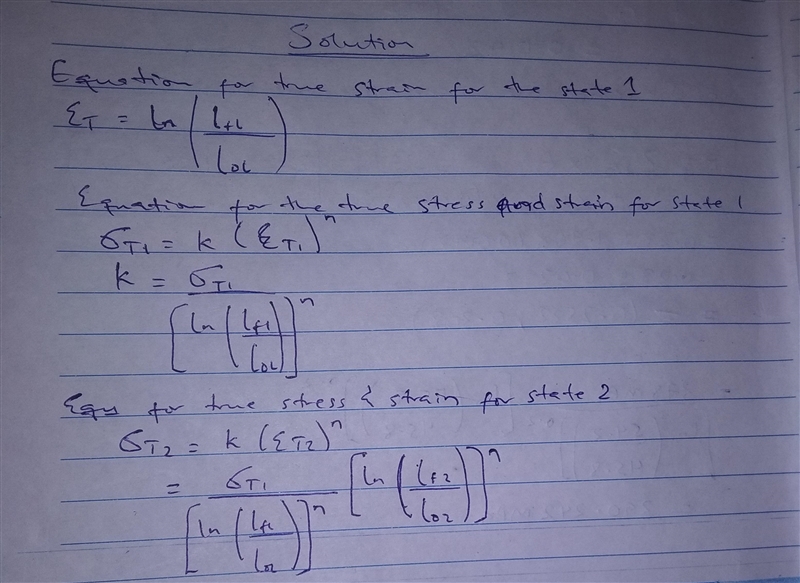 Solution
Equation for true strain for the state 1
ε_T = ln (l_f1 / l_01)
Equation for the true stress and strain for state 1
σ_T1 = k (ε_T1)^n
k = σ_T1 / [ln (l_f1 / l_01)]^n
Eqns for true stress & strain for state 2
σ_T2 = k (ε_T2)^n
= σ_T1 / [ln (l_f1 / l_01)]^n [ln (l_f2 / l_02)]^n